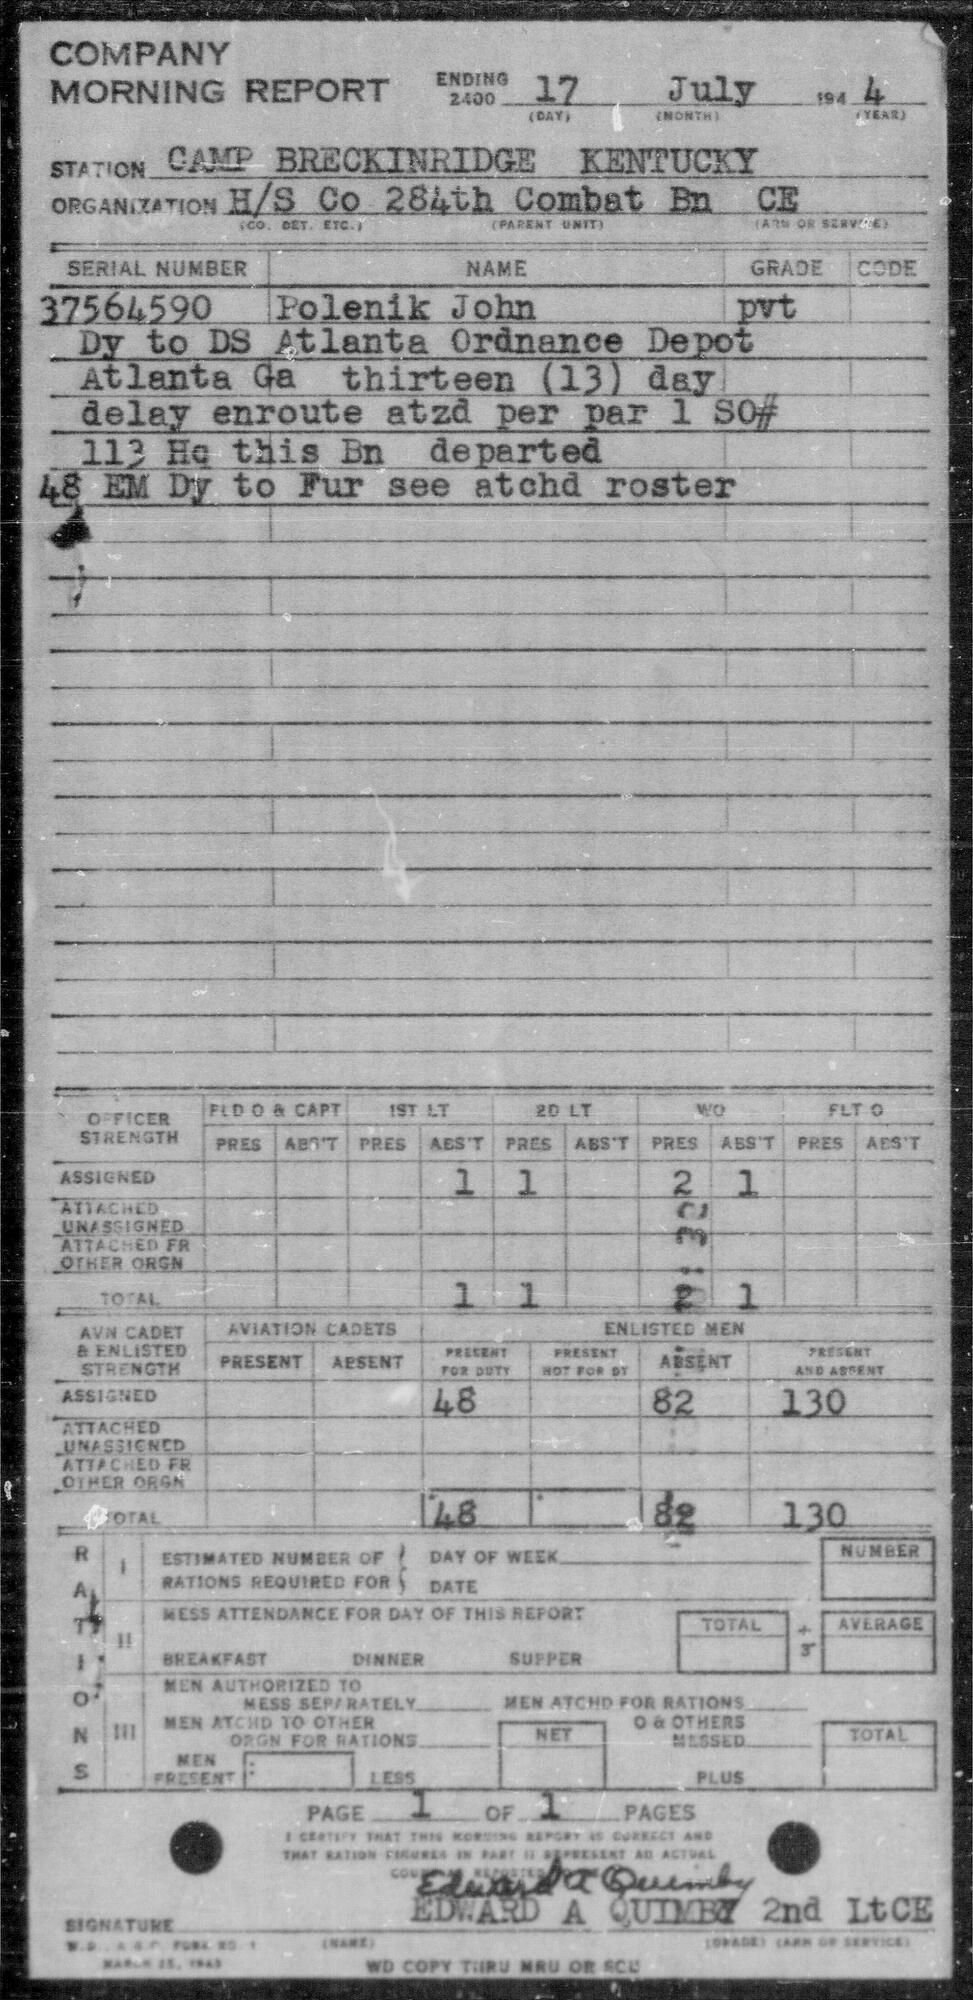 COMPANY
MORNING REPORT ENDING 2400 17 July 194 4
(DAY) (MONTH) (YEAR)
STATION CAMP BRECKINRIDGE KENTUCKY
ORGANIZATION H/S Co 284th Combat Bn CE
(CO. DET. ETC.) (PARENT UNIT) (ARM OR SERVICE)
SERIAL NUMBER NAME GRADE CODE
37564590 Polenik John pvt
Dy to DS Atlanta Ordnance Depot
Atlanta Ga thirteen (13) day
delay enroute atzd per par 1 SO#
113 Hq this Bn departed
48 EM Dy to Fur see atchd roster
OFFICER STRENGTH FLD O & CAPT 1ST LT 2D LT WO FLT O
PRES ABS'T PRES ABS'T PRES ABS'T PRES ABS'T PRES ABS'T
ASSIGNED 1 1 2 1
ATTACHED UNASSIGNED
ATTACHED FR OTHER ORGN
TOTAL 1 1 2 1
AVN CADET & ENLISTED STRENGTH AVIATION CADETS ENLISTED MEN
PRESENT ABSENT PRESENT FOR DUTY PRESENT NOT FOR DY ABSENT PRESENT AND ABSENT
ASSIGNED 48 82 130
ATTACHED UNASSIGNED
ATTACHED FR OTHER ORGN
TOTAL 48 82 130
RATIONS
I ESTIMATED NUMBER OF RATIONS REQUIRED FOR { DAY OF WEEK DATE NUMBER
II MESS ATTENDANCE FOR DAY OF THIS REPORT TOTAL ÷ 3 AVERAGE
BREAKFAST DINNER SUPPER
III MEN AUTHORIZED TO MESS SEPARATELY MEN ATCHD FOR RATIONS
MEN ATCHD TO OTHER ORGN FOR RATIONS NET O & OTHERS MESSED TOTAL
MEN PRESENT LESS PLUS
PAGE 1 OF 1 PAGES
I CERTIFY THAT THIS MORNING REPORT IS CORRECT AND
THAT RATION FIGURES IN PART II REPRESENT AN ACTUAL
Edward A Quimby
EDWARD A QUIMBY 2nd LtCE
SIGNATURE
W.D., A.G.O. FORM NO. 1 (NAME) (GRADE) (ARM OR SERVICE)
MARCH 25, 1943 WD COPY THRU MRU OR SCU